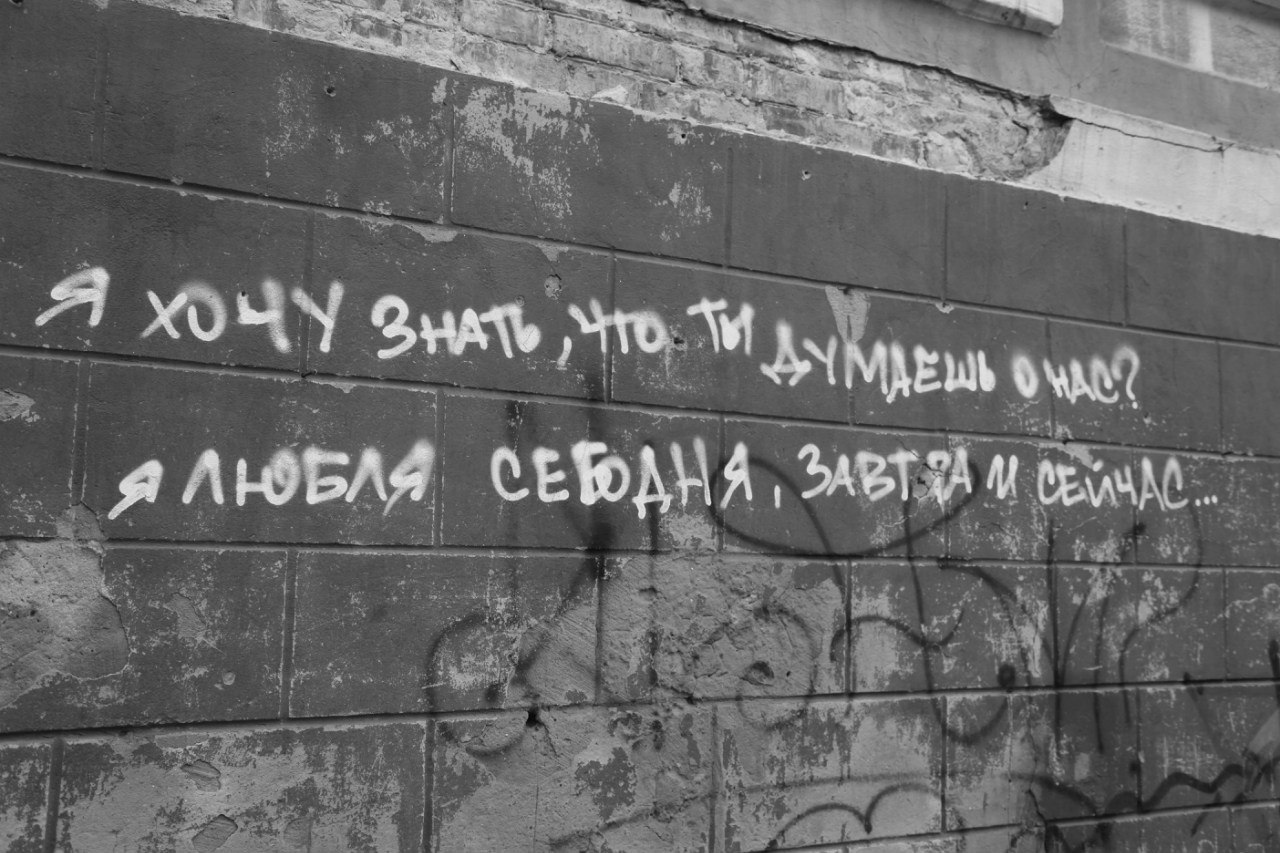 Я ХОЧУ ЗНАТЬ, ЧТО ТЫ ДУМАЕШЬ О НАС?
Я ЛЮБЛЯ СЕБОДНЯ, ЗАВТРА И СЕЙЧАС...